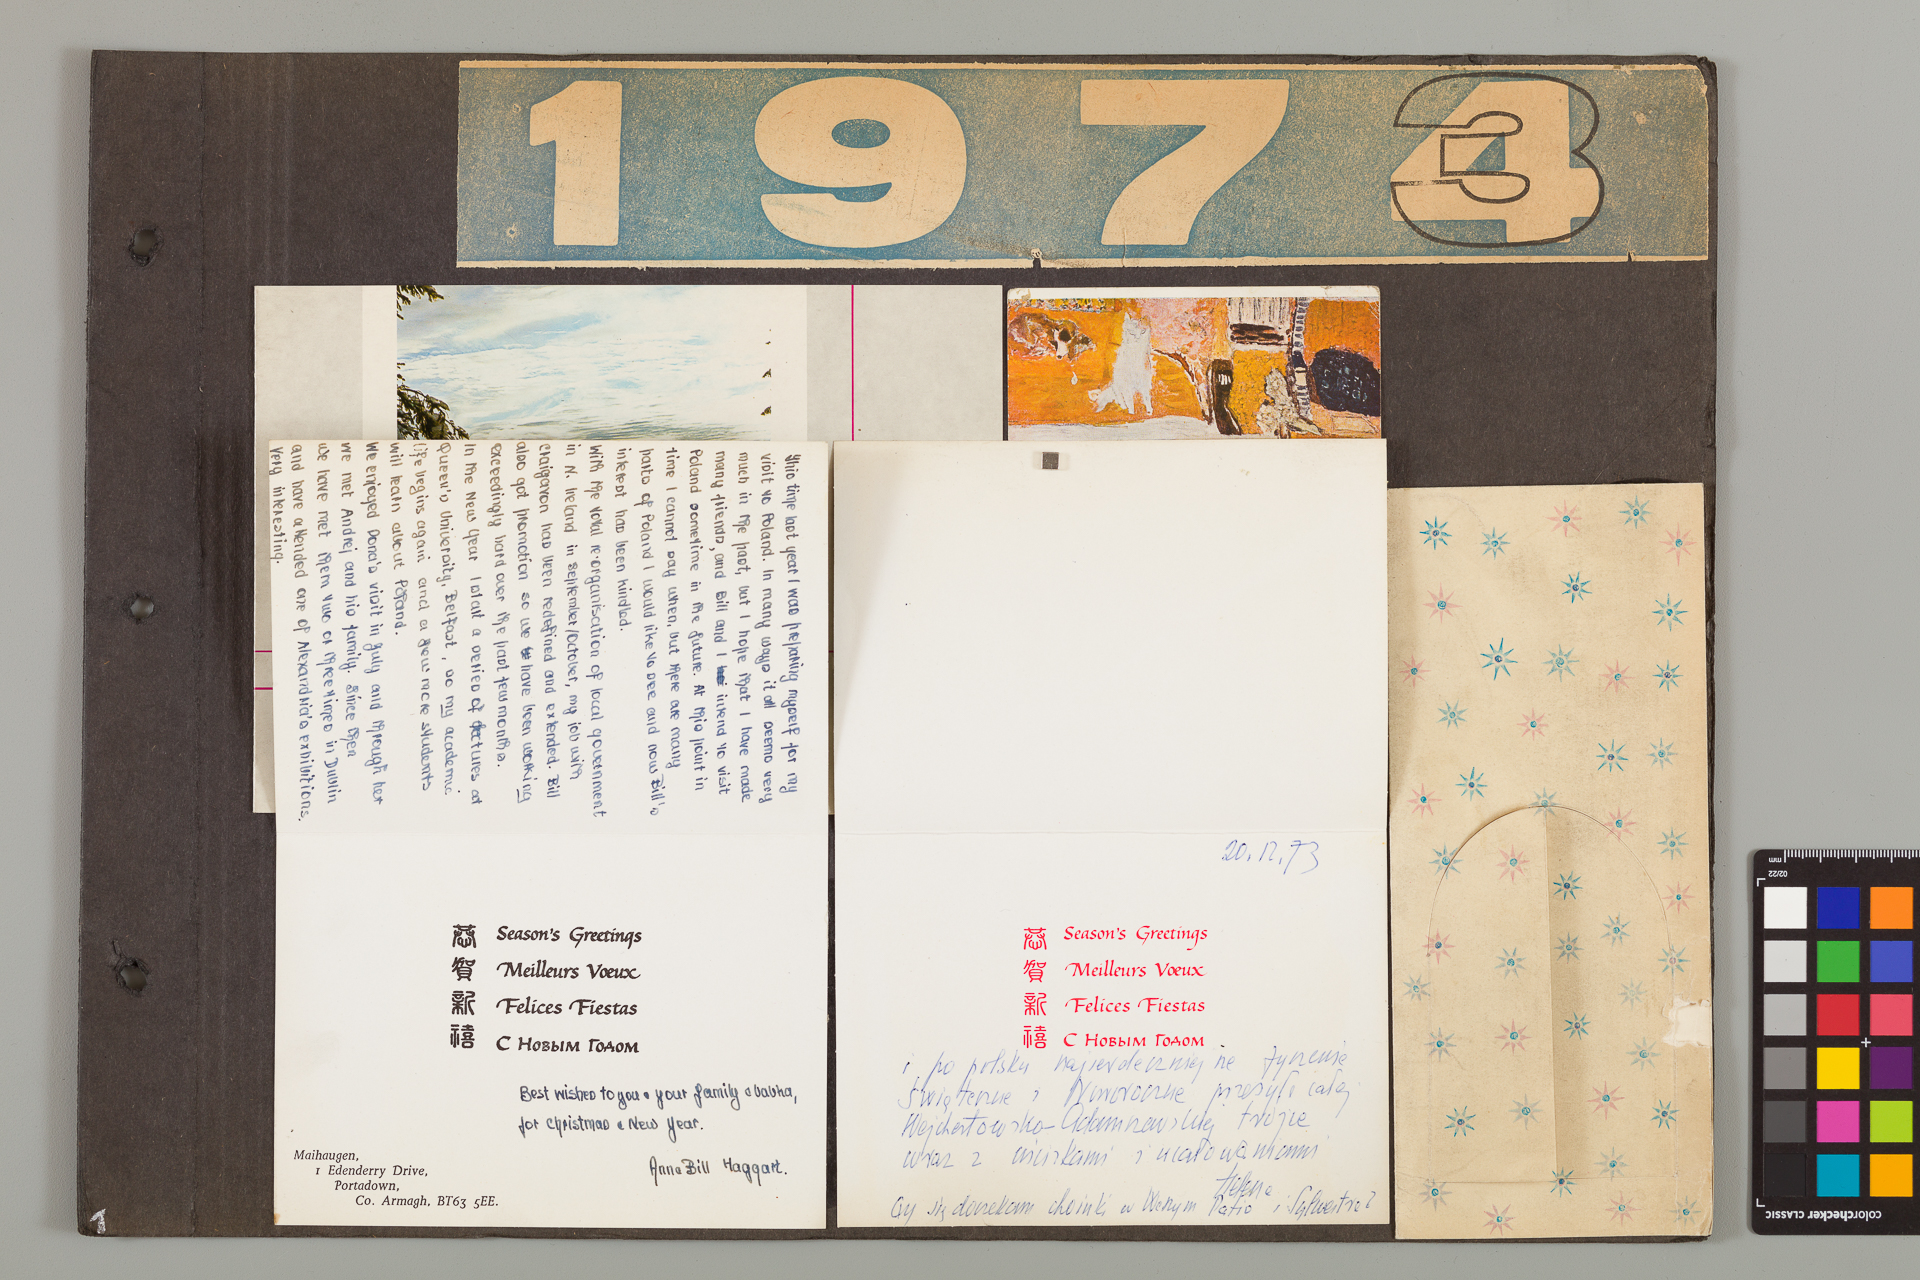 1974
3
This time last year I was preparing myself for my
visit to Poland. In many ways it all seems very
much in the past, but I hope that I have made
many friends, and Bill and I intend to visit
Poland sometime in the future. At this point in
time I cannot say when, but there are many
parts of Poland I would like to see and now Bill's
interest has been kindled.
With the total re-organisation of local government
in N. Ireland in september/October, my job with
Craigavon has been redefined and extended. Bill
also got promotion so we have been working
exceedingly hard over the past few months.
In the New Year I start a series of lectures at
Queen's University, Belfast, so my academic
life begins again and a few more students
will learn about Poland.
We enjoyed Dona's visit in July and through her
we met Andrej and his family. Since then
we have met them two or three times in Dublin
and have attended one of Alexandria's exhibitions.
Very interesting.
恭 Season's Greetings
賀 Meilleurs Vœux
新 Felices Fiestas
禧 С Новым Годом
Best wishes to you & your family & babcia,
for christmas & New Year.
Anne Bill Haggart.
Maihaugen,
1 Edenderry Drive,
Portadown,
Co. Armagh, BT63 5EE.
20.12.73
恭 Season's Greetings
賀 Meilleurs Vœux
新 Felices Fiestas
禧 С Новым Годом
i po polsku najserdeczniejsze życzenia
Świąteczne i Noworoczne przesyła całej
Wejchertowsko-Adamczewskiej trójce
wraz z uściskami i ucałowaniami
Helena
Czy się doczekam choinki w Waszym Patio i Sylwestra?
1
mm
02/22
colorchecker CLASSIC